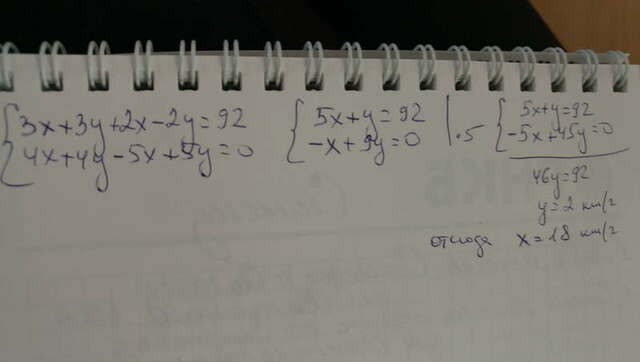 3x+3y+2x-2y=92
4x+4y-5x+5y=0
5x+y=92
-x+9y=0 | ·5
5x+y=92
-5x+45y=0
46y=92
y=2 км/г
отсюда x=18 км/г